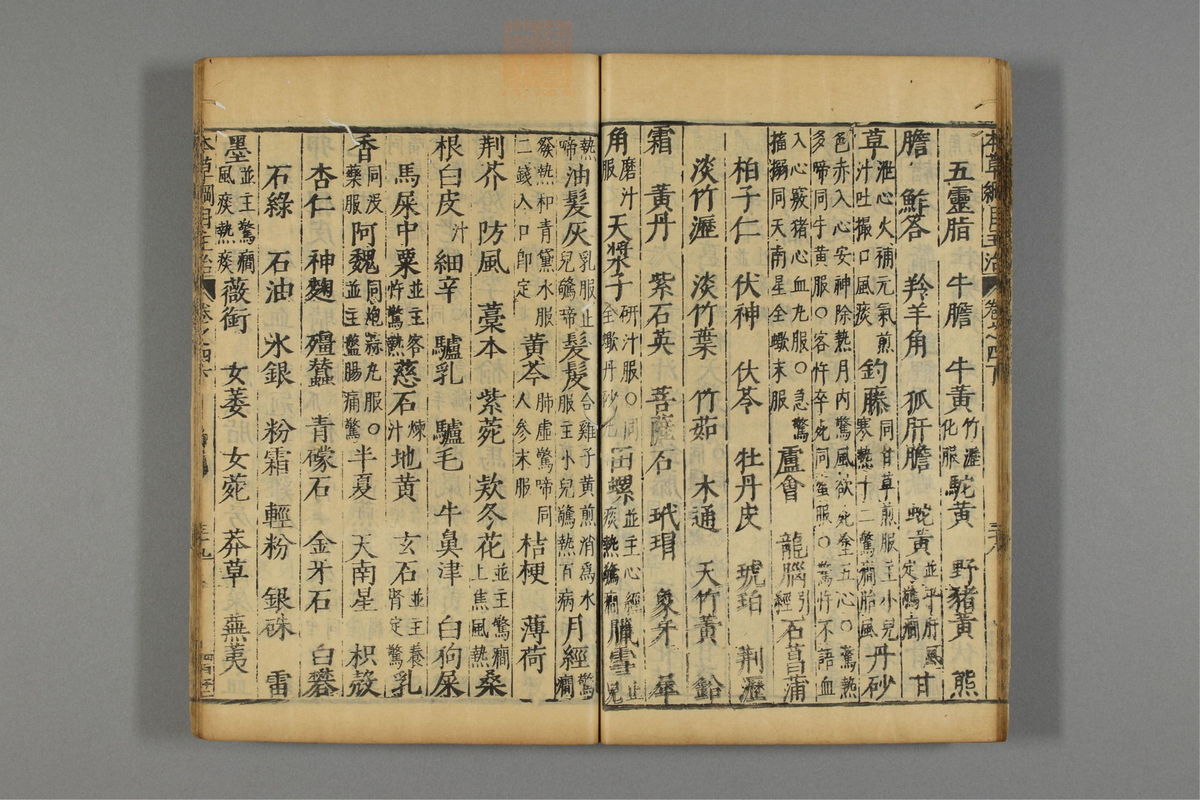 本草綱目主治 卷之四下
五靈脂 牛膽 牛黃 竹瀝化服 駝黃 野豬黃 熊
膽 鮓荅 羚羊角 狐肝膽 蛇黃 並平肝風定驚癇 甘
草 瀉心火補元氣煎汁吐撮口風痰 釣藤 同甘草煎服主小兒寒熱十二驚癇胎風 丹砂
色赤入心安神除熱月內驚風欲死塗五心○驚熱多啼同牛黃服○客忤卒死同蜜服○驚忤不語血
入心竅猪心血丸服○急驚搐搦同天南星全蠍末服 盧會 龍腦 引經 石菖蒲
柏子仁 伏神 伏苓 牡丹皮 琥珀 荆瀝
淡竹瀝 淡竹葉 竹茹 木通 天竹黃 鉛
霜 黃丹 紫石英 菩薩石 玳瑁 象牙 犀
角 磨汁服 天漿子 研汁服○同全蠍丹砂 田螺 並主心經痰熱驚癇 臘雪 止兒
熱啼 油髮灰 乳服止兒驚啼 髮髲 合雞子黃煎消為水服主小兒驚熱百病 月經 驚癇
發熱和青黛水服二錢入口即定 黃芩 人參末服 肺虛驚啼同 桔梗 薄荷
荆芥 防風 藁本 紫菀 欵冬花 並主驚癇上焦風熱 桑
根白皮 汁 細辛 驢乳 驢毛 牛鼻津 白狗屎
馬屎中粟 並主客忤驚熱 慈石 煉汁 地黃 玄石 並主養腎定驚 乳
香 同没藥服 阿魏 同炮蒜丸服○並主盤腸痛驚 半夏 天南星 枳殼
杏仁 神麯 殭蠶 青礞石 金牙石 白礬
石綠 石油 水銀 粉霜 輕粉 銀硃 雷
墨 並主驚癇風痰熱痰 薇銜 女萎 女菀 莽草 蕪荑
本草綱目主治 卷之四下